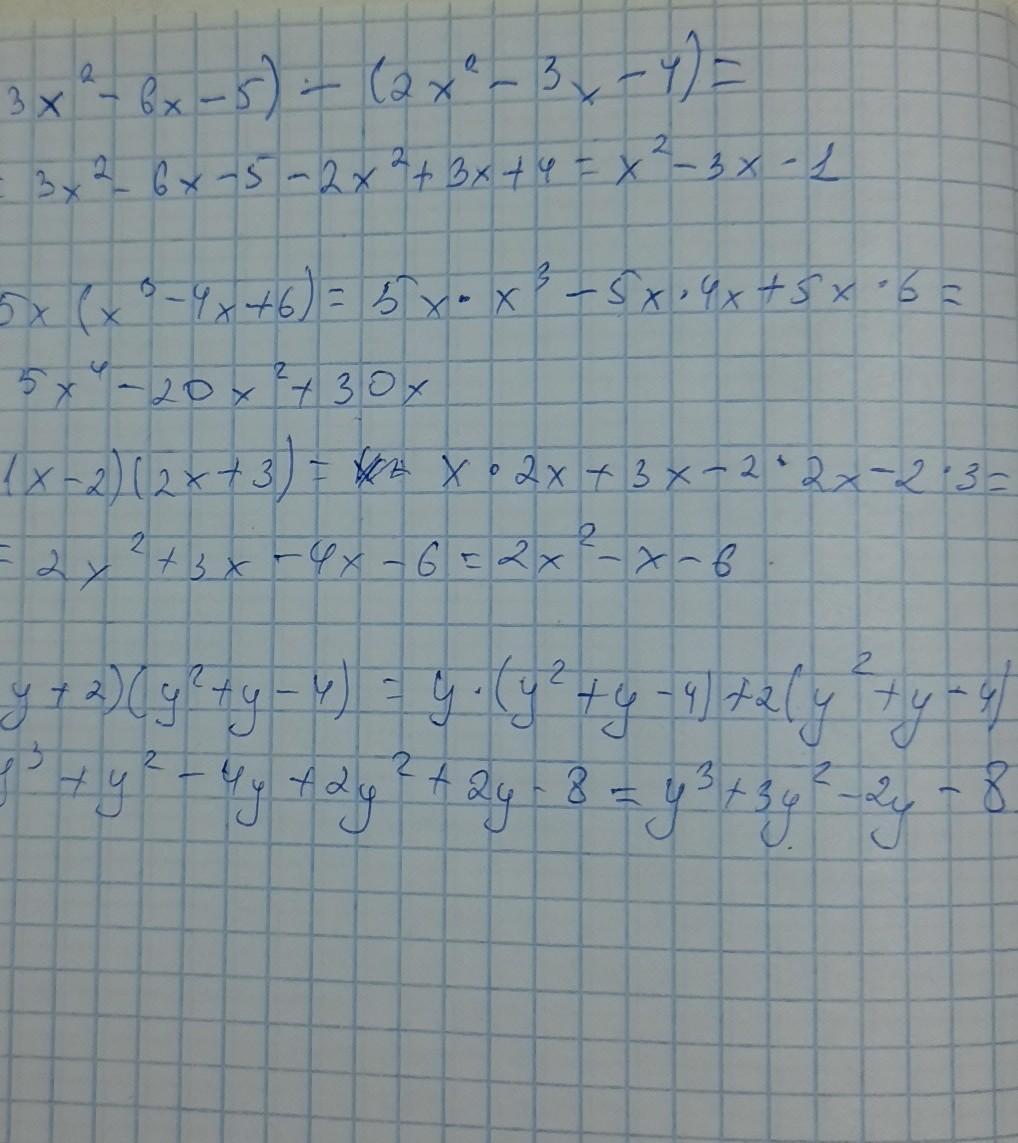 3x² - 6x - 5) - (2x² - 3x - 4) =
= 3x² - 6x - 5 - 2x² + 3x + 4 = x² - 3x - 1
5x (x³ - 4x + 6) = 5x · x³ - 5x · 4x + 5x · 6 =
5x⁴ - 20x² + 30x
(x - 2)(2x + 3) = x · 2x + 3x - 2 · 2x - 2 · 3 =
= 2x² + 3x - 4x - 6 = 2x² - x - 6
y + 2)(y² + y - 4) = y · (y² + y - 4) + 2(y² + y - 4)
y³ + y² - 4y + 2y² + 2y - 8 = y³ + 3y² - 2y - 8